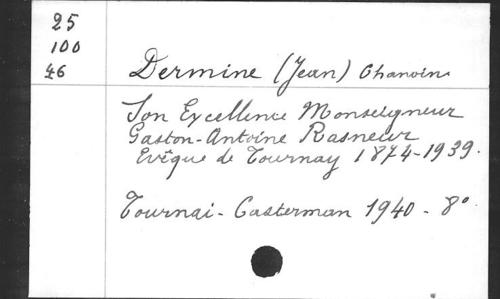 25
100
46
Dermine (Jean) Chanoine
Son Excellence Monseigneur
Gaston-Antoine Rasneur
Evêque de Tournay 1874-1939.
Tournai - Casterman 1940 - 8°